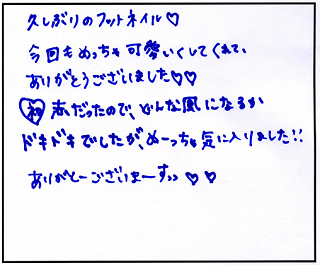 久しぶりのフットネイル♡
今回もめっちゃ可愛いくしてくれて、
ありがとうございました♡♡
初 赤だったので、どんな風になるか
ドキドキでしたが、めーっちゃ気に入りました!!
ありがとーございまーす♪♪ ♡ ♡